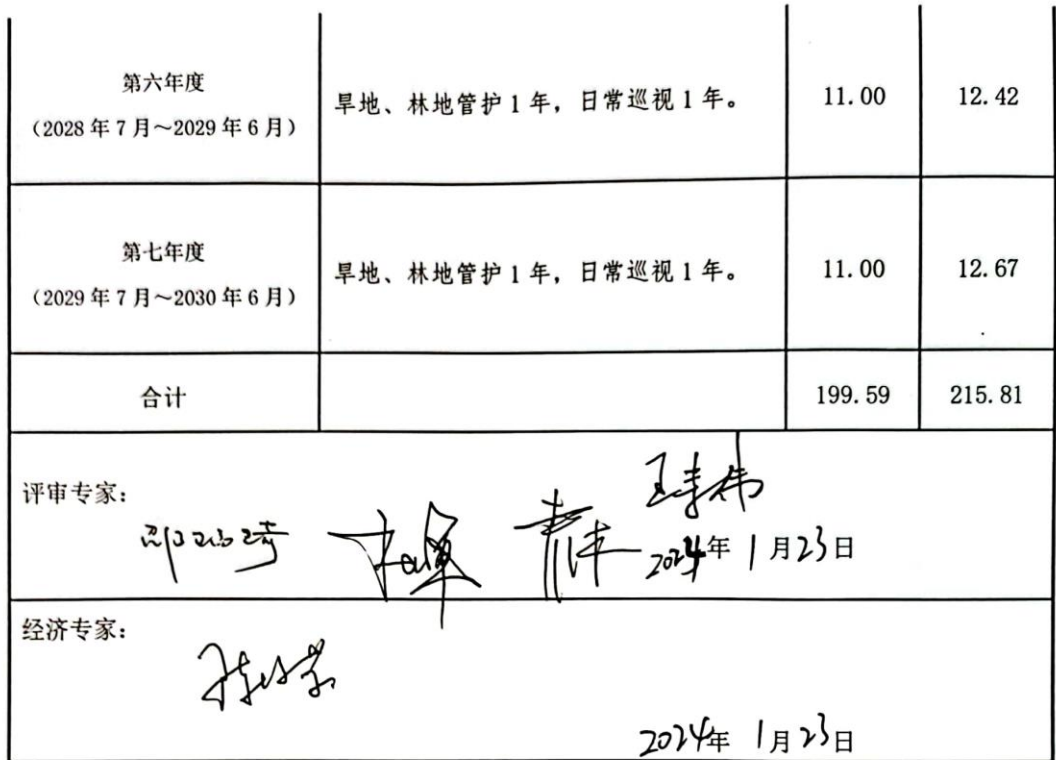 第六年度
（2028年7月～2029年6月）
旱地、林地管护1年，日常巡视1年。
11.00
12.42
第七年度
（2029年7月～2030年6月）
旱地、林地管护1年，日常巡视1年。
11.00
12.67
合计
199.59
215.81
评审专家：
2024年1月23日
经济专家：
2024年1月23日